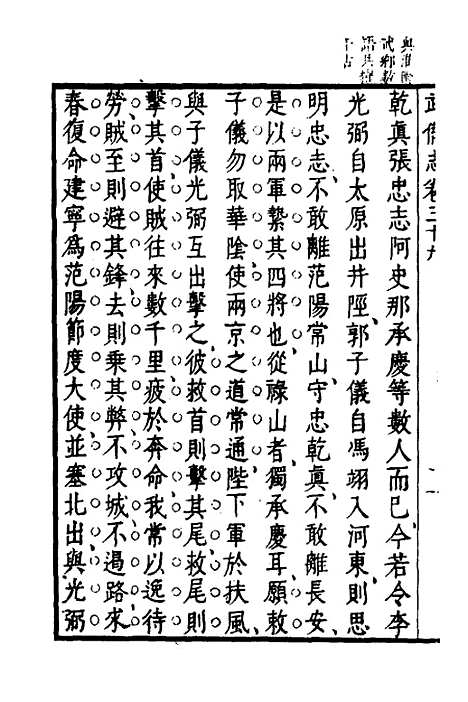 武備志卷三十九
乾真張忠志阿史那承慶等數人而已今若令李
光弼自太原出井陘郭子儀自馮翊入河東則思
明忠志不敢離范陽常山守忠乾真不敢離長安
是以兩軍縶其四將也從祿山者獨承慶耳願敕
子儀勿取華陰使兩京之道常通陛下軍於扶風
與子儀光弼互出擊之彼救首則擊其尾救尾則
擊其首使賊往來數千里疲於奔命我常以逸待
勞賊至則避其鋒去則乘其弊不攻城不遏路來
春復命建寧爲范陽節度大使並塞北出與光弼